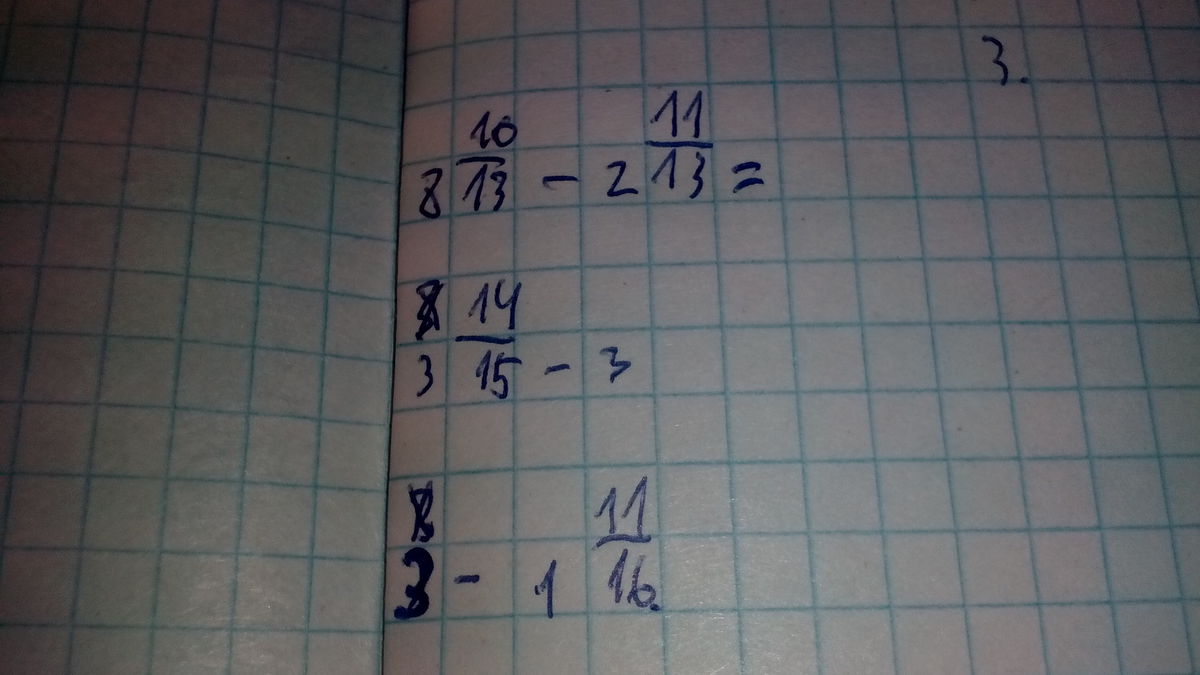 3.
8 10/13 - 2 11/13 =
3 14/15 - 3
3 - 1 11/16.